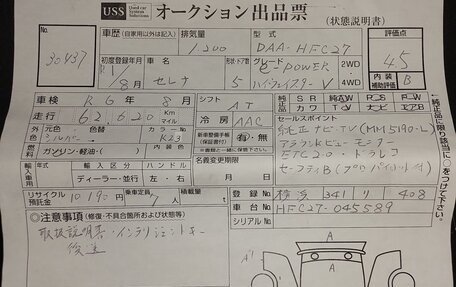 USS Used car System Solutions オークション出品票 (状態説明書)
No. 30437
車歴 (自家用以外は記入)
排気量 1,200
型式 DAA-HFC27
評価点 4.5
内装 B
初度登録年月
車名 セレナ
ドア 5
グレード e-POWER ハイウェイスター V
2WD
4WD
車検 R6年 8月
シフト AT
走行 62,620 Km
冷房 AAC
外元色 シルバー
色替
カラーNo K23
燃料 ガソリン・軽油・( )
新車整備手帳(保証書) 有・無
輸入車用 年式 輸入区分 ハンドル
ディーラー・並行 左・右
名義変更期限
月 日
リサイクル預託金 10190円
乗車定員 7人
積載量
SR
AW
PS
PW
セールスポイント
純正ナビ・TV (MM519D-L)
アラウンドビューモニター
ETC2.0・ドラレコ
セーフティB (プロパイロット付)
純正品に限り該当に○をつけて下さい。
登録No. 横浜 341 り 408
車台No. HFC27-045589
シリアルNo.
◎注意事項 (修復・不具合箇所および状態等)
取扱説明書・インテリジェントキー
後送
A1